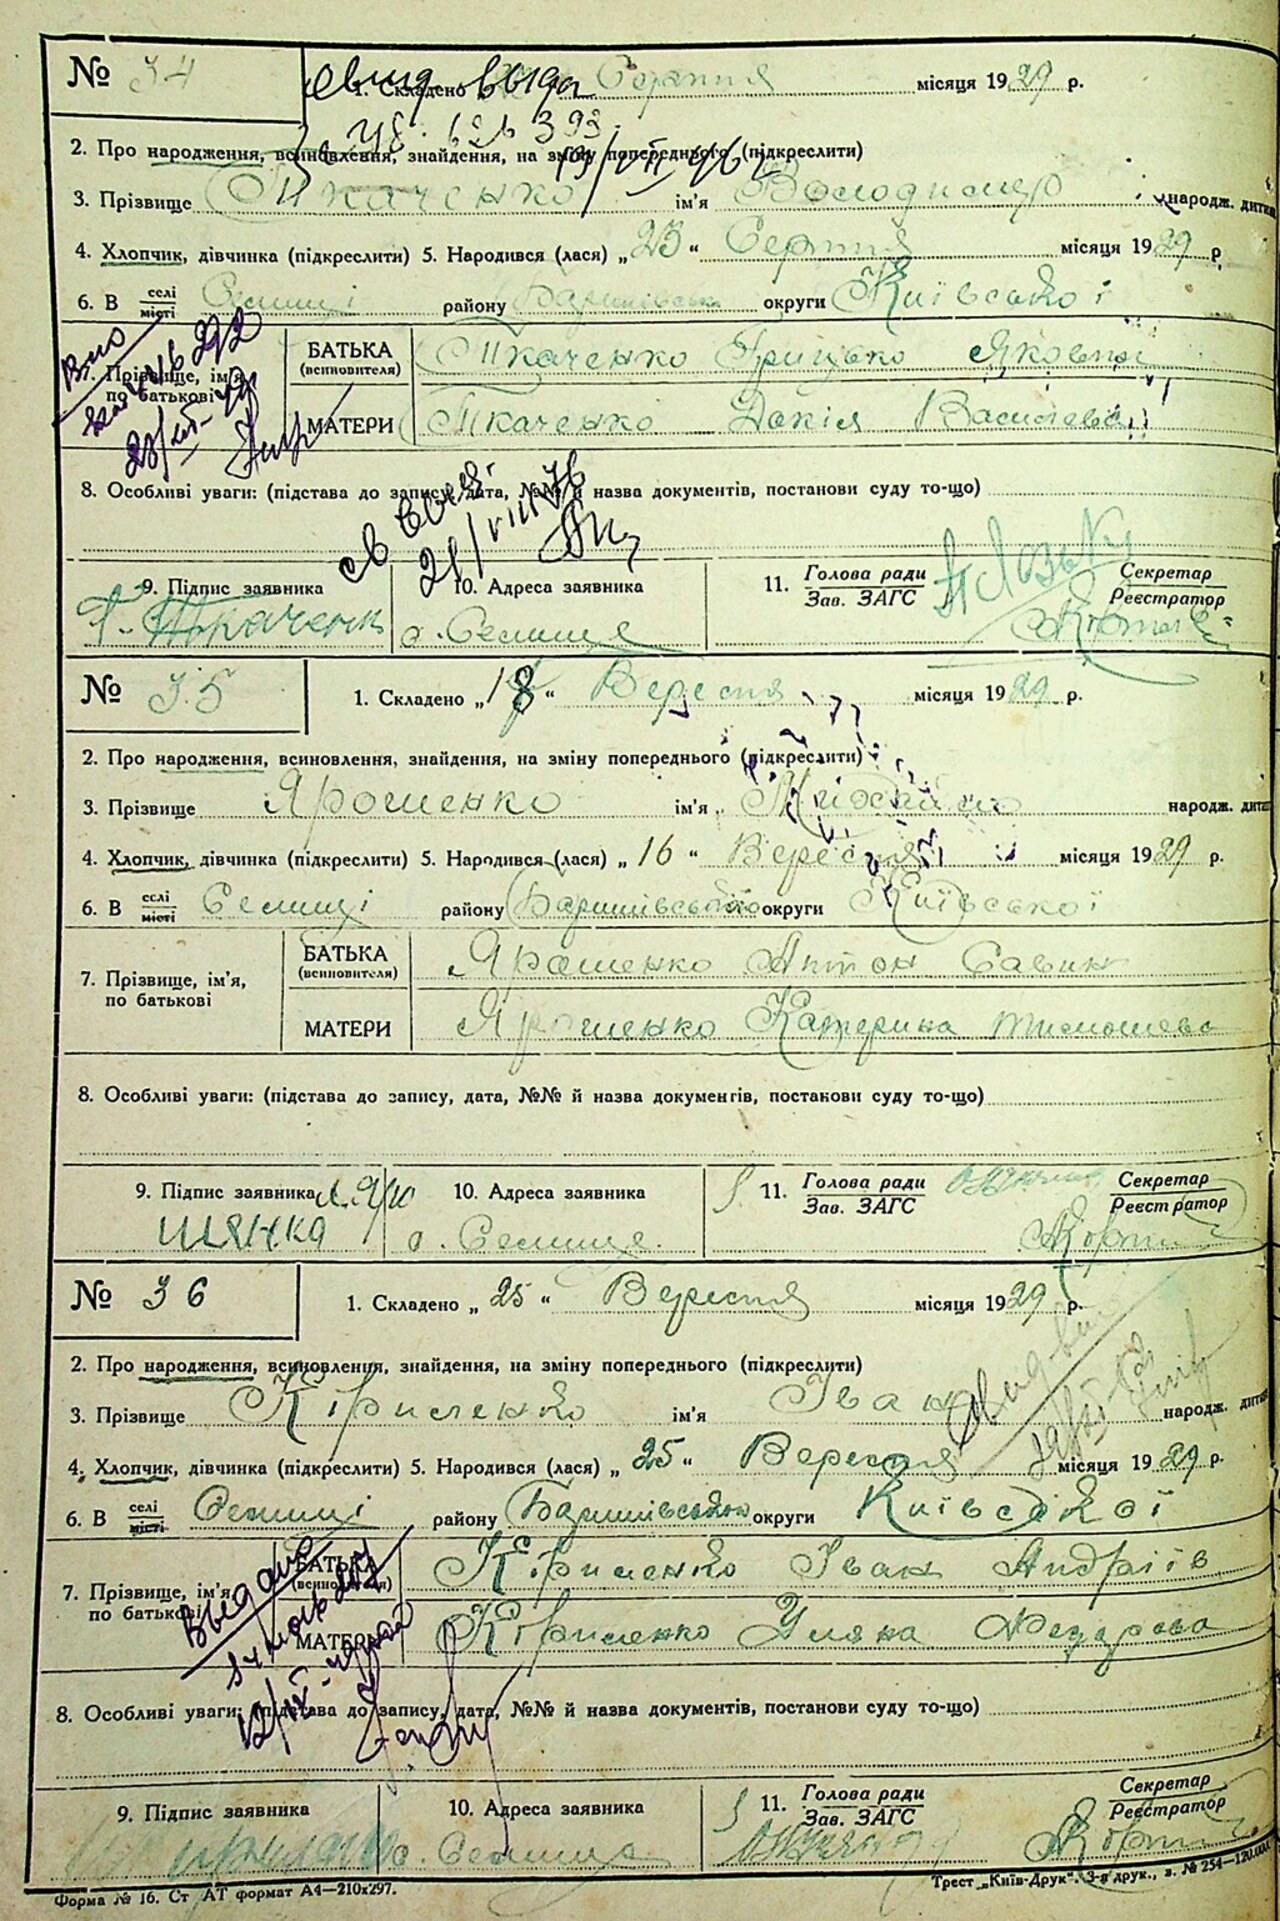 № 34
свид выда
1. Складено Серпня місяця 1929 р.
2. Про народження, всиновлення, знайдення, на зміну попереднього (підкреслити)
3. Прізвище Ткаченко ім'я Володимир народж. дитин
4. Хлопчик, дівчинка (підкреслити) 5. Народився (лася) „23“ Серпня місяця 1929 р
6. В селі місті Селищі району Баришівськ округи Київської
7. Прізвище, ім'я, по батькові
БАТЬКА (всиновителя) Ткаченко Грицько Якович
МАТЕРИ Ткаченко Докія Василева
8. Особливі уваги: (підстава до запису, дата, №№ й назва документів, постанови суду то-що)
21/VIII 76
9. Підпис заявника 10. Адреса заявника 11. Голова ради Зав. ЗАГС Секретар Реєстратор
Г. Ткаченк с. Селище
№ 35 1. Складено „18“ Вересня місяця 1929 р.
2. Про народження, всиновлення, знайдення, на зміну попереднього (підкреслити)
3. Прізвище Ярошенко ім'я Михайло народж. дитин
4. Хлопчик, дівчинка (підкреслити) 5. Народився (лася) „16“ Вересня місяця 1929 р.
6. В селі місті Селищі району Баришівського округи Київської
7. Прізвище, ім'я, по батькові
БАТЬКА (всиновителя) Ярошенко Антон Савин
МАТЕРИ Ярошенко Катерина Тимошева
8. Особливі уваги: (підстава до запису, дата, №№ й назва документів, постанови суду то-що)
9. Підпис заявника 10. Адреса заявника 11. Голова ради Зав. ЗАГС Секретар Реєстратор
с. Селище.
№ 36 1. Складено „25“ Вересня місяця 1929 р.
2. Про народження, всиновлення, знайдення, на зміну попереднього (підкреслити)
3. Прізвище Кириленко ім'я Іван народж. дитин
4. Хлопчик, дівчинка (підкреслити) 5. Народився (лася) „25“ Вересня місяця 1929 р.
6. В селі місті Селищі району Баришівського округи Київської
7. Прізвище, ім'я, по батькові
БАТЬКА (всиновителя) Кириленко Іван Андріїв
МАТЕРИ Кириленко Уляна Федорова
Выдано
8. Особливі уваги: (підстава до запису, дата, №№ й назва документів, постанови суду то-що)
9. Підпис заявника 10. Адреса заявника 11. Голова ради Зав. ЗАГС Секретар Реєстратор
с. Селище
Форма № 16. Ст АТ формат А4—210х297. Трест „Київ-Друк“. 3-я друк., з. № 254—120.000